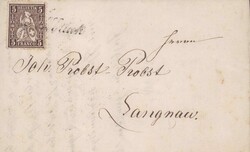 5 5
Herrn
Joh. Probst-Probst
Langnau.